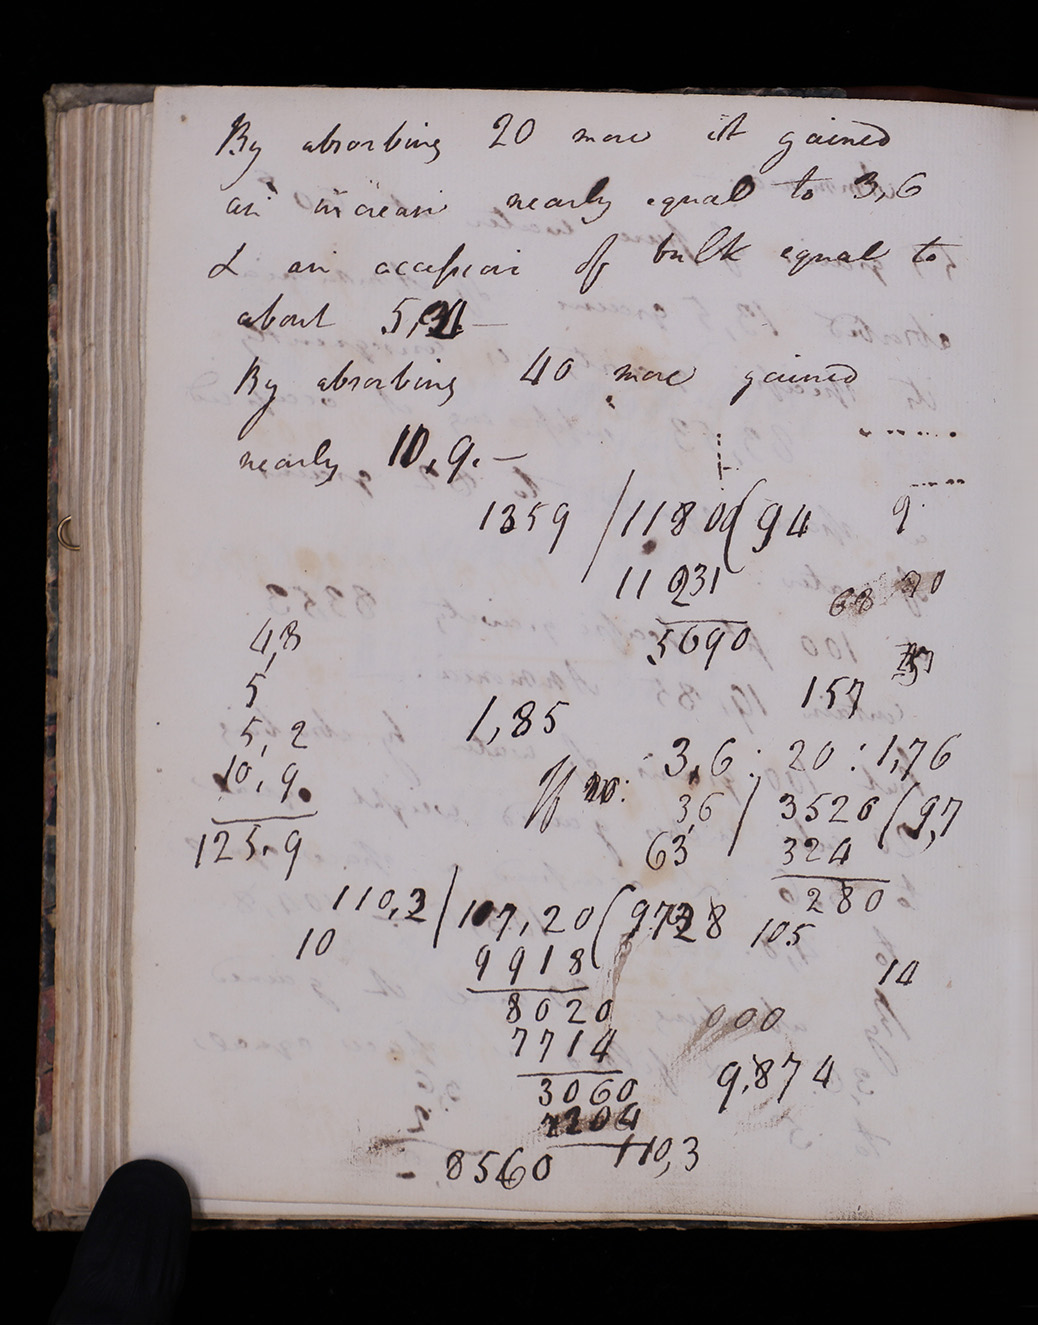 By absorbing 20 more it gained
an increase nearly equal to 3,6
& an accession of bulk equal to
about 5,
By absorbing 40 more gained
nearly 10,9.—
1359 / 11800 ( 94 9
11 231
68 20
5690
4,8
5
157
1,85
5,2
3,6 : 20 : 1,76
10,9
3,6 / 3520 ( 9,7
63 324
125.9
280
110,3 / 107,20 ( 97
10
105
9918
14
8020
000
7714
9,874
3060
2204
110,3
8560